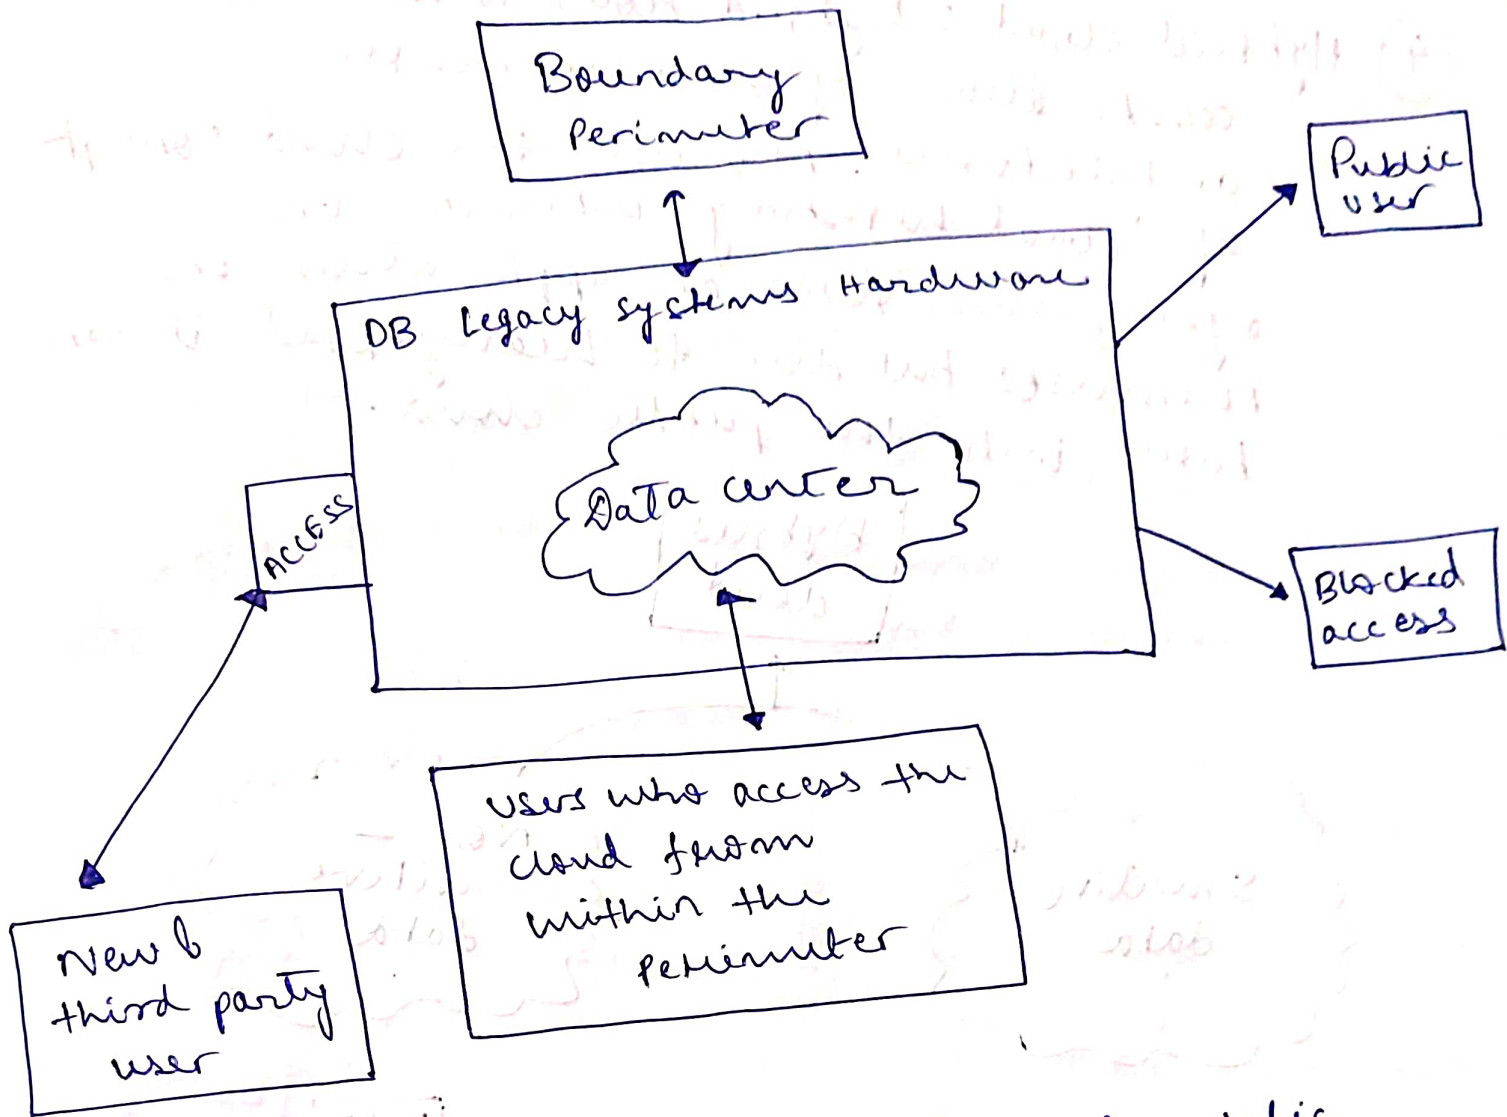 Boundary
Perimeter
Public
user
DB Legacy systems Hardware
Data center
ACCESS
Blocked
access
users who access the
cloud from
within the
perimeter
New &
third party
user